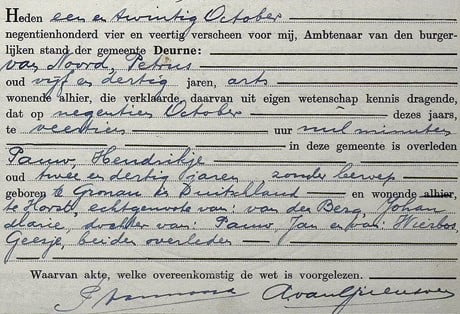 Heden een en twintig October
negentienhonderd vier en veertig verscheen voor mij, Ambtenaar van den burger-
lijken stand der gemeente Deurne:
van Noord, Petrus
oud vijf en dertig jaren, arts
wonende alhier, die verklaarde, daarvan uit eigen wetenschap kennis dragende,
dat op negentien October dezes jaars,
te veertien uur nul minuten
in deze gemeente is overleden
Pauw, Hendrikje
oud twee en dertig jaren, zonder beroep
geboren te Gronau in Duitschland en wonende alhier,
te Horst, echtgenoote van: van der Berg, Johan
Marie, dochter van: Pauw, Jan en van: Wierbos,
Geesje, beiden overleden
Waarvan akte, welke overeenkomstig de wet is voorgelezen.